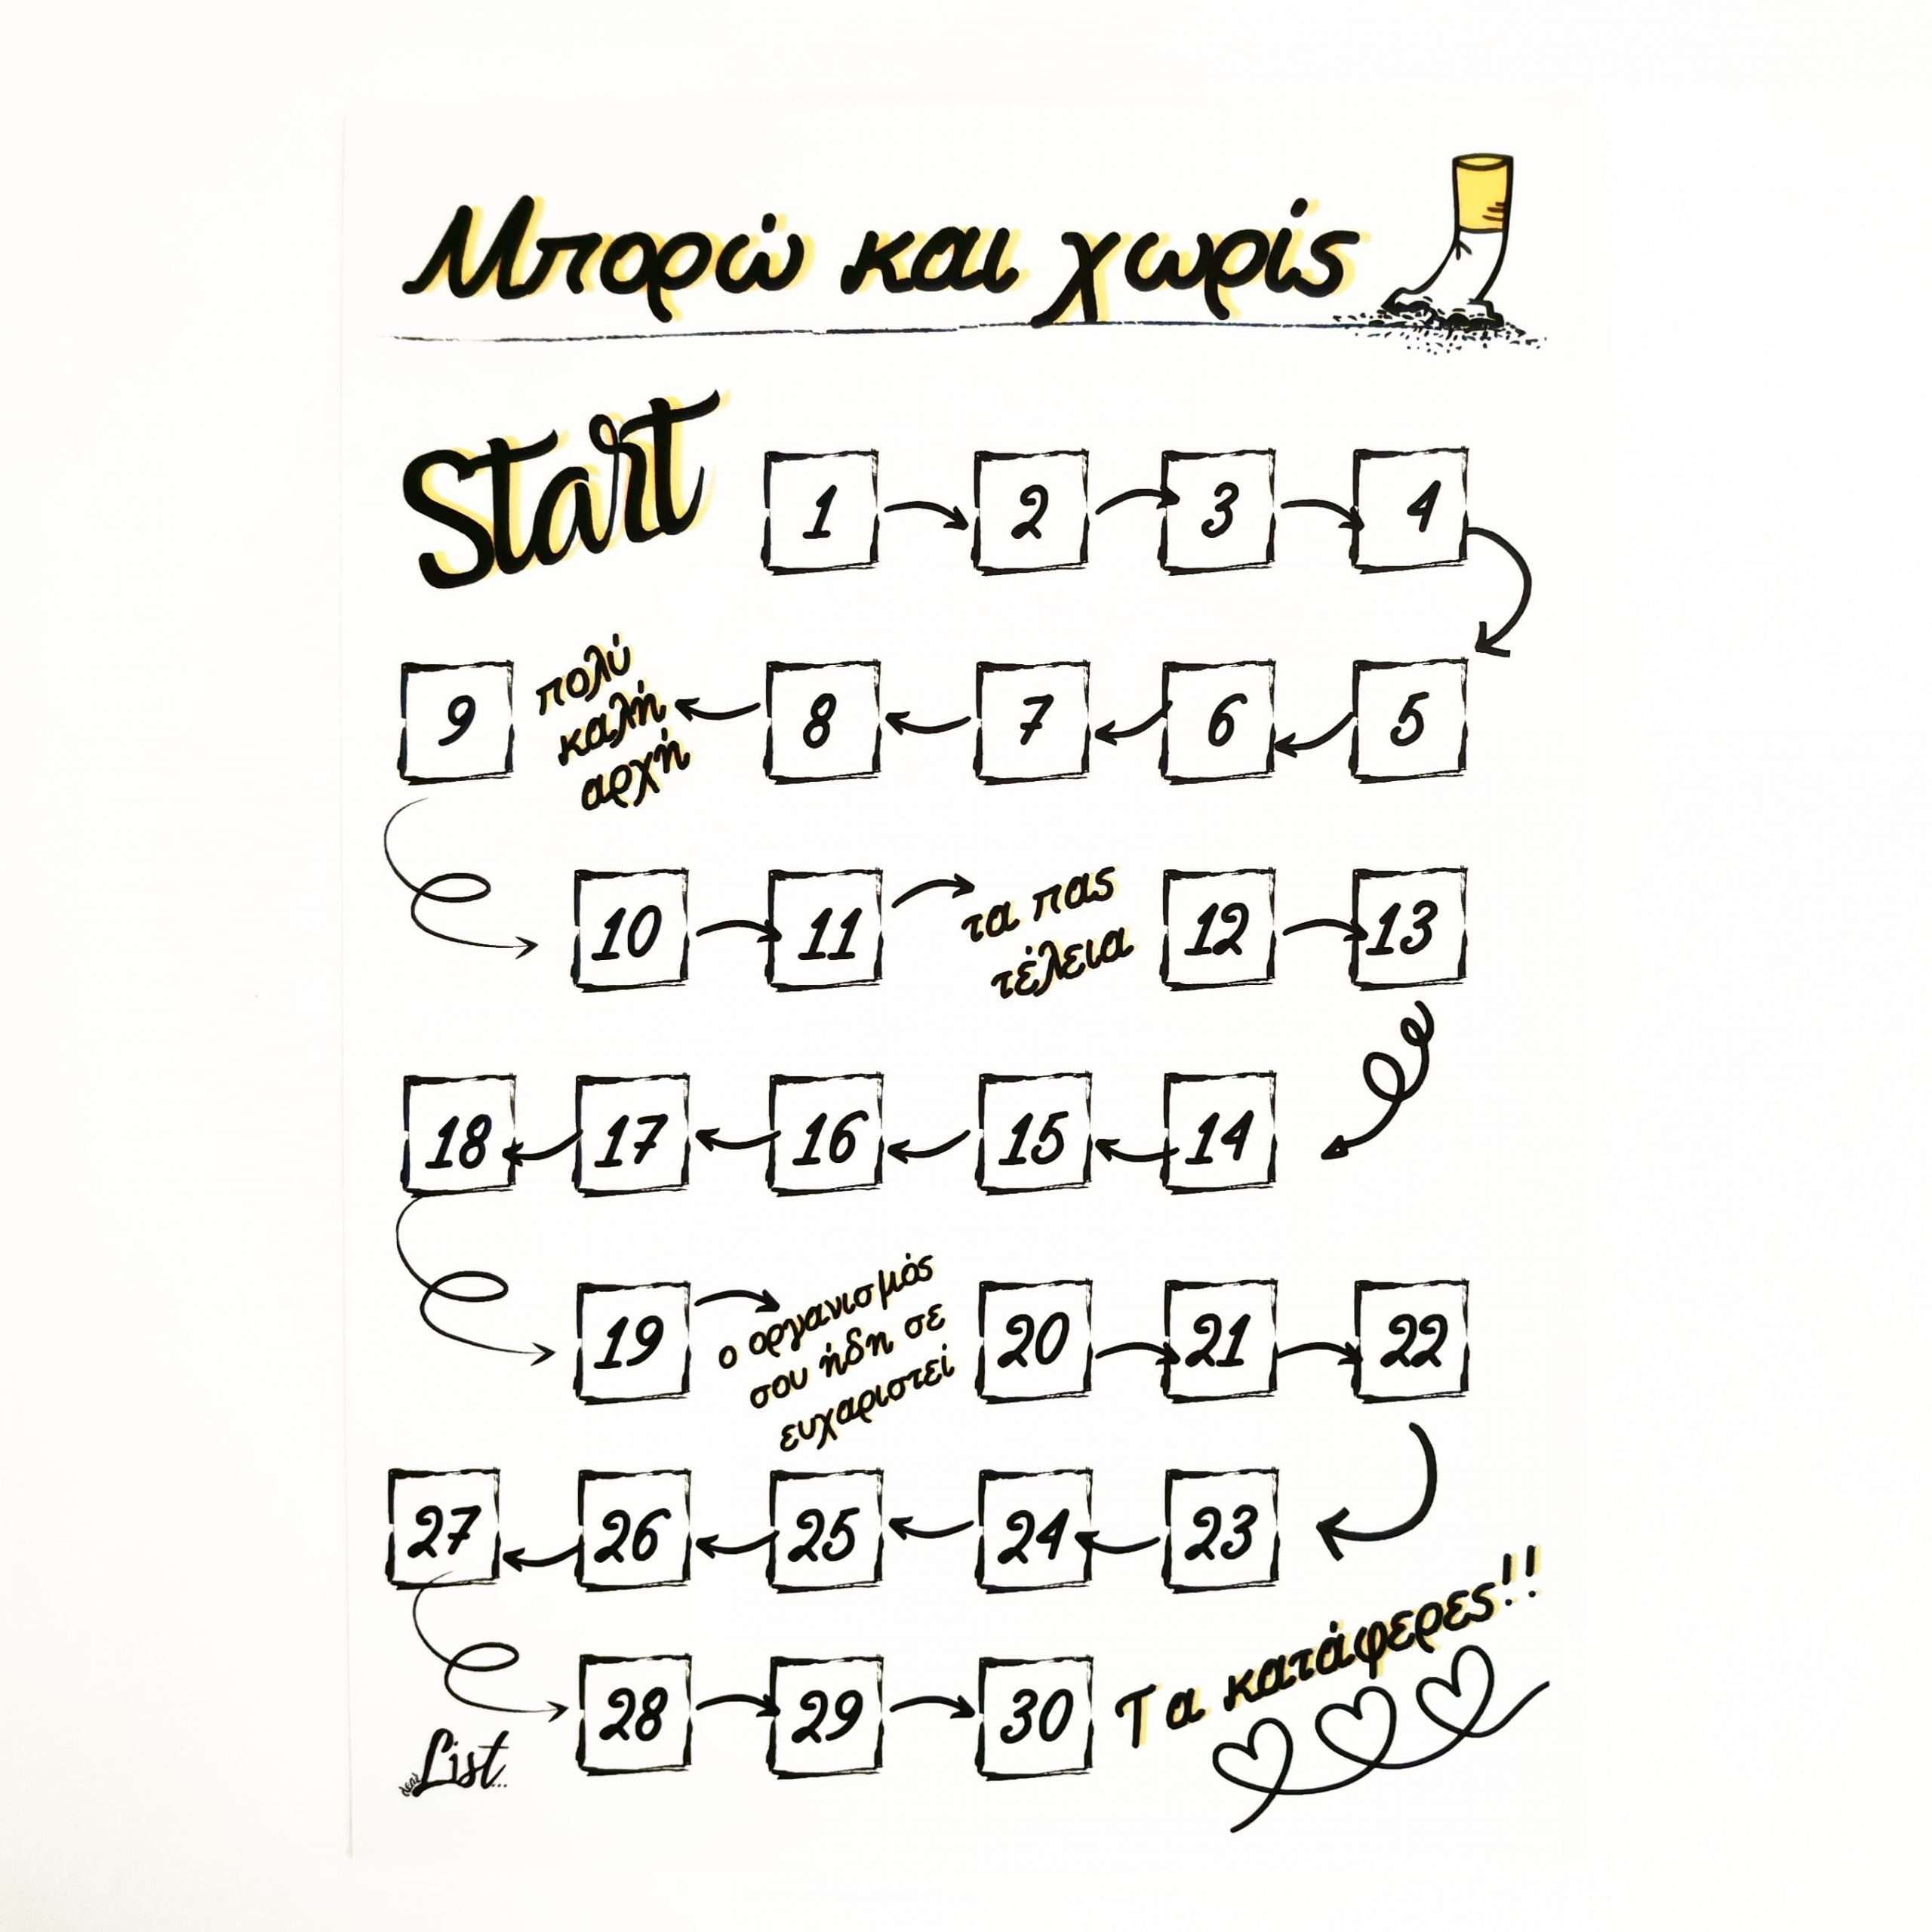 Μπορώ και χωρίς
Start
1 2 3 4
9
πολύ
καλή
αρχή
8 7 6 5
10 11
τα πας
τέλεια
12 13
18 17 16 15 14
19
ο οργανισμός
σου ήδη σε
ευχαριστεί
20 21 22
27 26 25 24 23
28 29 30
Τα κατάφερες!!
dear List...